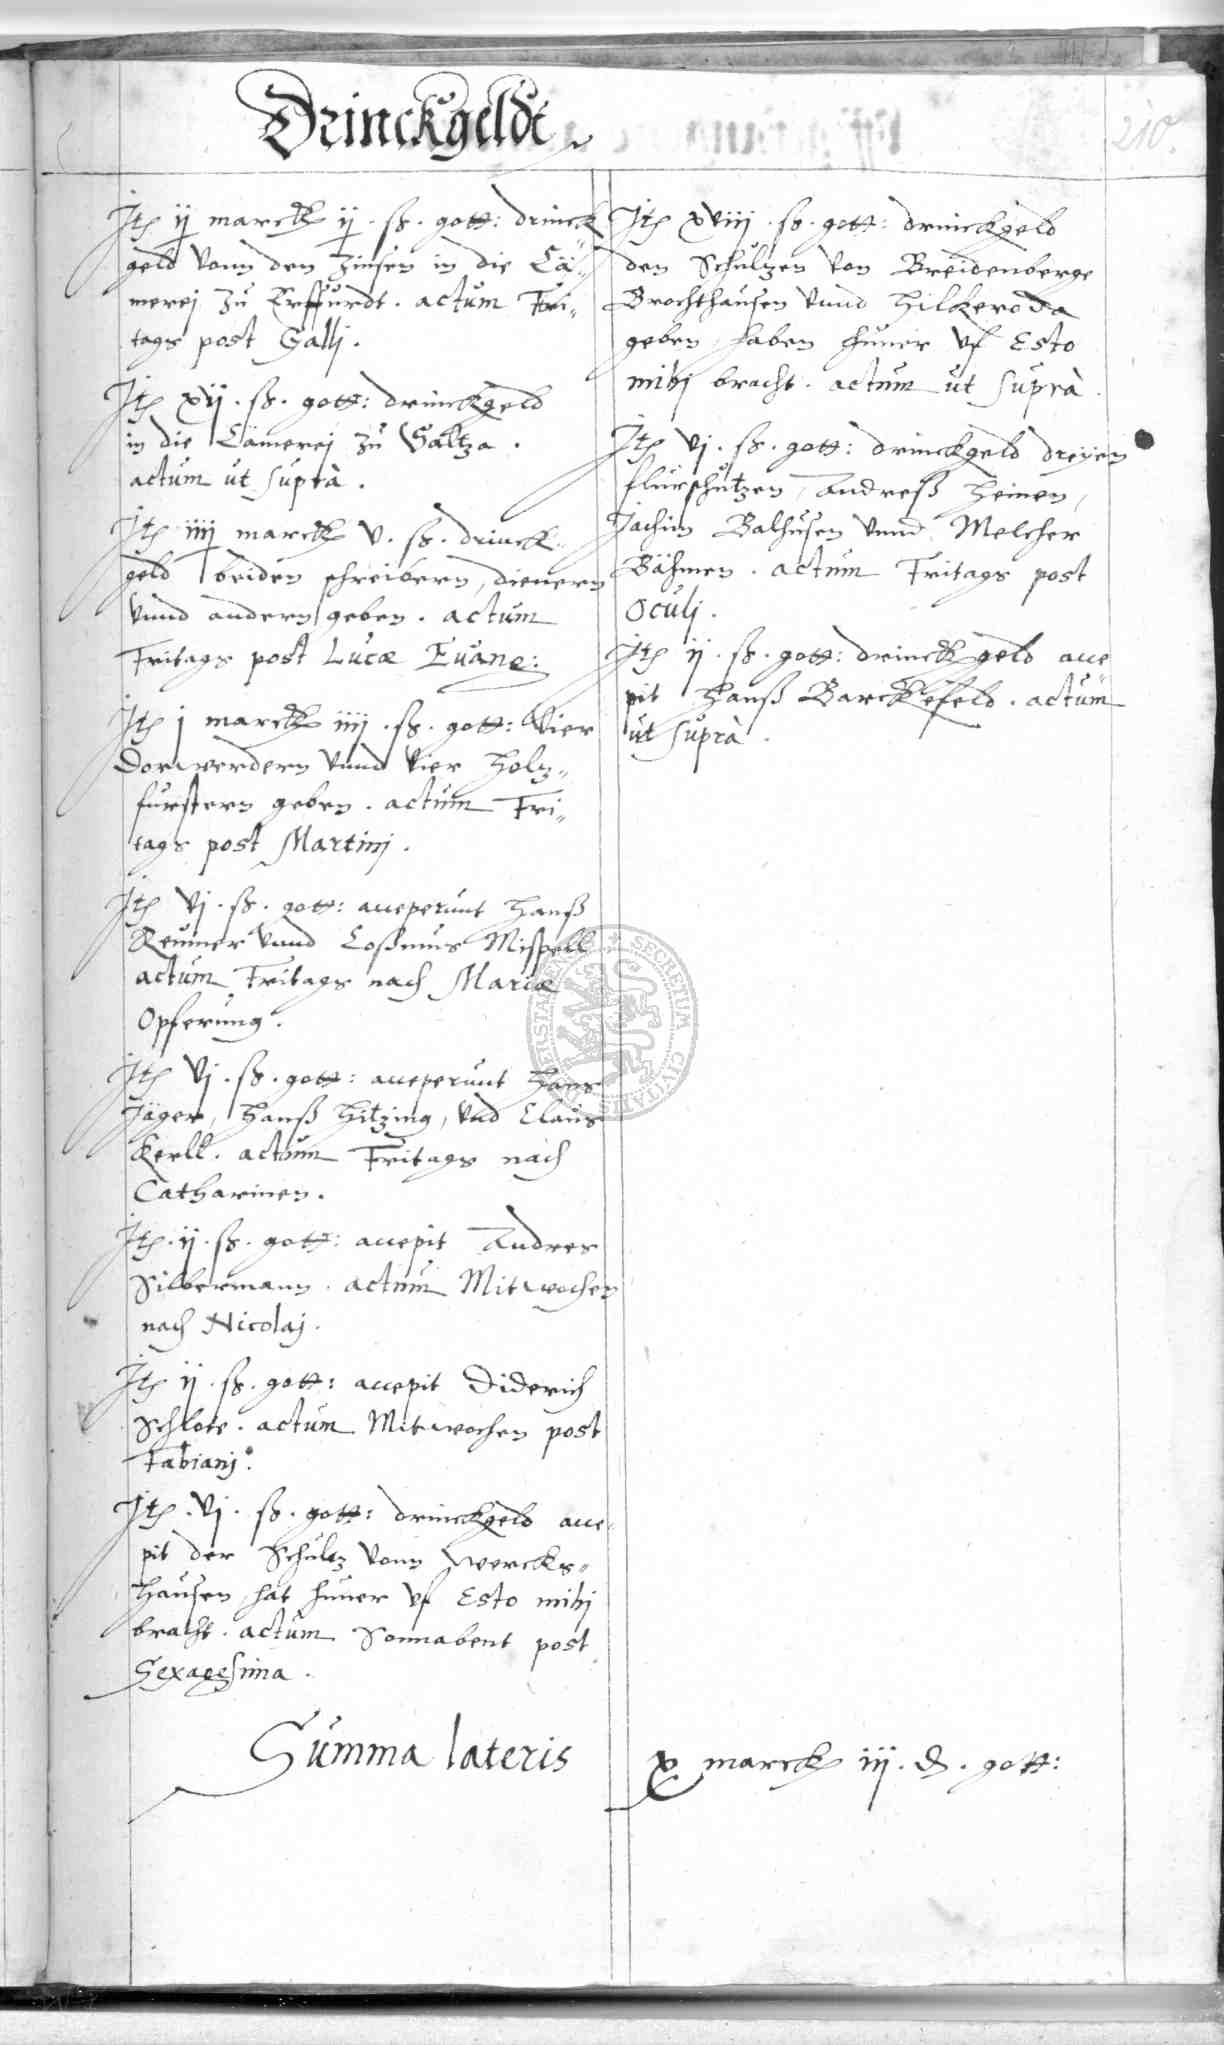 Drinckgeldt
210.
Jtem ij marck ij. ß. gott: drinck
geld vonn den zinsen in die Cä„
merej zu Erffurdt. actum Fri„
tags post Gallj.
Jtem xij. ß. gott: drinckgeld
in die Cämerej zu Saltza.
actum ut suprà.
Jtem iiij marck v. ß. drinck„
geld beiden schreibern, dienern
vnnd andern geben. actum
Fritags post Lucæ Euang:
Jtem j marck iiij. ß. gott: vier
Dorwerdern vnnd vier holtz„
furstern geben. actum Fri„
tags post Martinj.
Jtem vj. ß. gott: acceperunt Hanß
Reumer vnnd Coßmus Mispell
actum Fritags nach Mariæ
Opferung.
Jtem vj. ß. gott: acceperunt Hans
Jäger, Hanß Hitzing, vnd Claus
Kerll. actum Fritags nach
Catharinen.
Jtem. ij. ß. gott: accepit Andres
Silbermann. actum Mitwochen
nach Nicolaj.
Jtem ij. ß. gott: accepit Diderich
Schlote. actum Mitwochen post
Fabianj.
Jtem. vj. ß. gott: drinckgeld acce„
pit der Schultz vonn Wercks„
hausen, hat huner vf Esto mihj
bracht. actum Sonnabent post
Sexagesima.
Jtem xviij. ß. gott: drinckgeld
den Schultzen von Breidenberge
Brochthausen vnnd Hilkeroda
geben, haben huner vf Esto
mihj bracht. actum ut suprà.
Jtem vj. ß. gott: drinckgeld dreyen
flurschutzen, Andreß Heinen,
Jachim Balhusen vnnd Melcher
Bähmen. actum Fritags post
Oculj.
Jtem ij. ß. gott: drinckgeld acce
pit Hanß Barckefeld. actum
ut suprà.
Summa lateris x marck iij. d. gott:
SECRETUM CIVITATIS